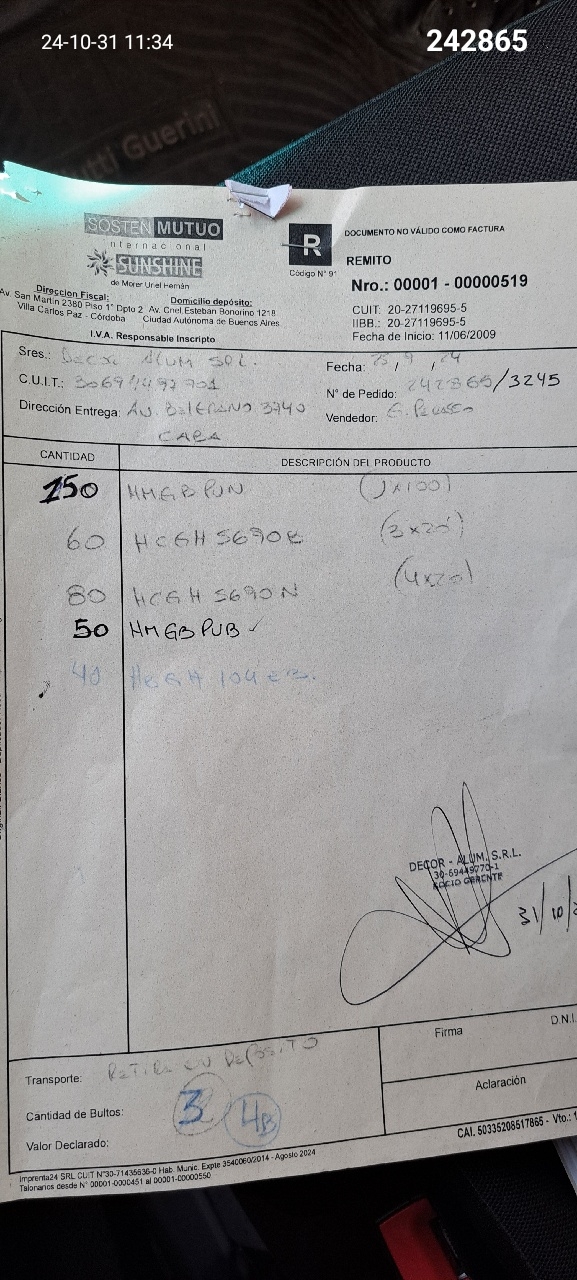 24-10-31 11:34
242865
utti Guerini
SOSTÉN MUTUO
internacional
SUNSHINE
de Morer Uriel Hernán
R
Código N° 91
DOCUMENTO NO VÁLIDO COMO FACTURA
REMITO
Nro.: 00001 - 00000519
CUIT: 20-27119695-5
IIBB.: 20-27119695-5
Fecha de Inicio: 11/06/2009
Direccion Fiscal:
Av. San Martin 2380 Piso 1° Dpto 2
Villa Carlos Paz - Córdoba
Domicilio depósito:
Av. Cnel.Esteban Bonorino 1218
Ciudad Autónoma de Buenos Aires
I.V.A. Responsable Inscripto
Sres.: Decor Alum SRL.
Fecha: 25/9/24
C.U.I.T.:
N° de Pedido: 242865/3245
Dirección Entrega: Av. BELGRANO 3740
CABA
Vendedor:
CANTIDAD DESCRIPCIÓN DEL PRODUCTO
150 HMGB PUN (1x100)
60 HCGH 5690B (3x20)
80 HCGH 5690N (4x20)
50 HMGB PUB ✓
40 HCGH
DECOR - ALUM. S.R.L.
30-69449770-1
SOCIO GERENTE
31/10/
Transporte: RETIRA EN DEPOSITO
Cantidad de Bultos: 3 4B
Valor Declarado:
Firma
D.N.I.
Aclaración
CAI. 50335208517865 - Vto.: 1
Imprenta24 SRL CUIT N°30-71435636-0 Hab. Munic. Expte 3540060/2014 - Agosto 2024
Talonarios desde N° 00001-0000451 al 00001-00000550